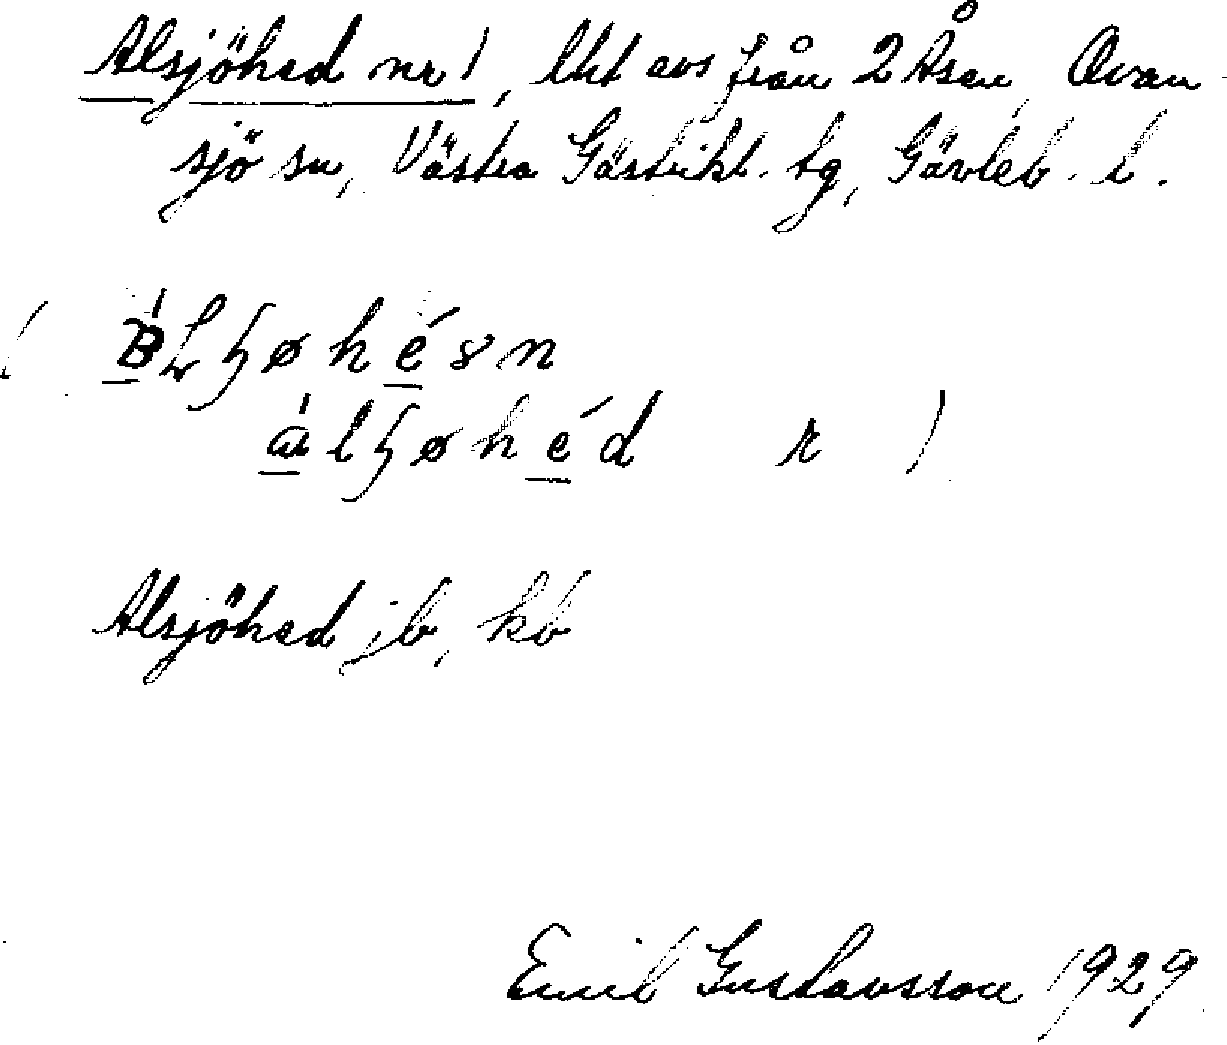 Alsjöhed nr 1, lht avs från 2 Åsen, Ovan-
sjö sn, Västra Gästrikl. tg, Gävleb. l.
álꞕøhéd r )
Alsjöhed jb, kb
Emil Gustavsson 1929